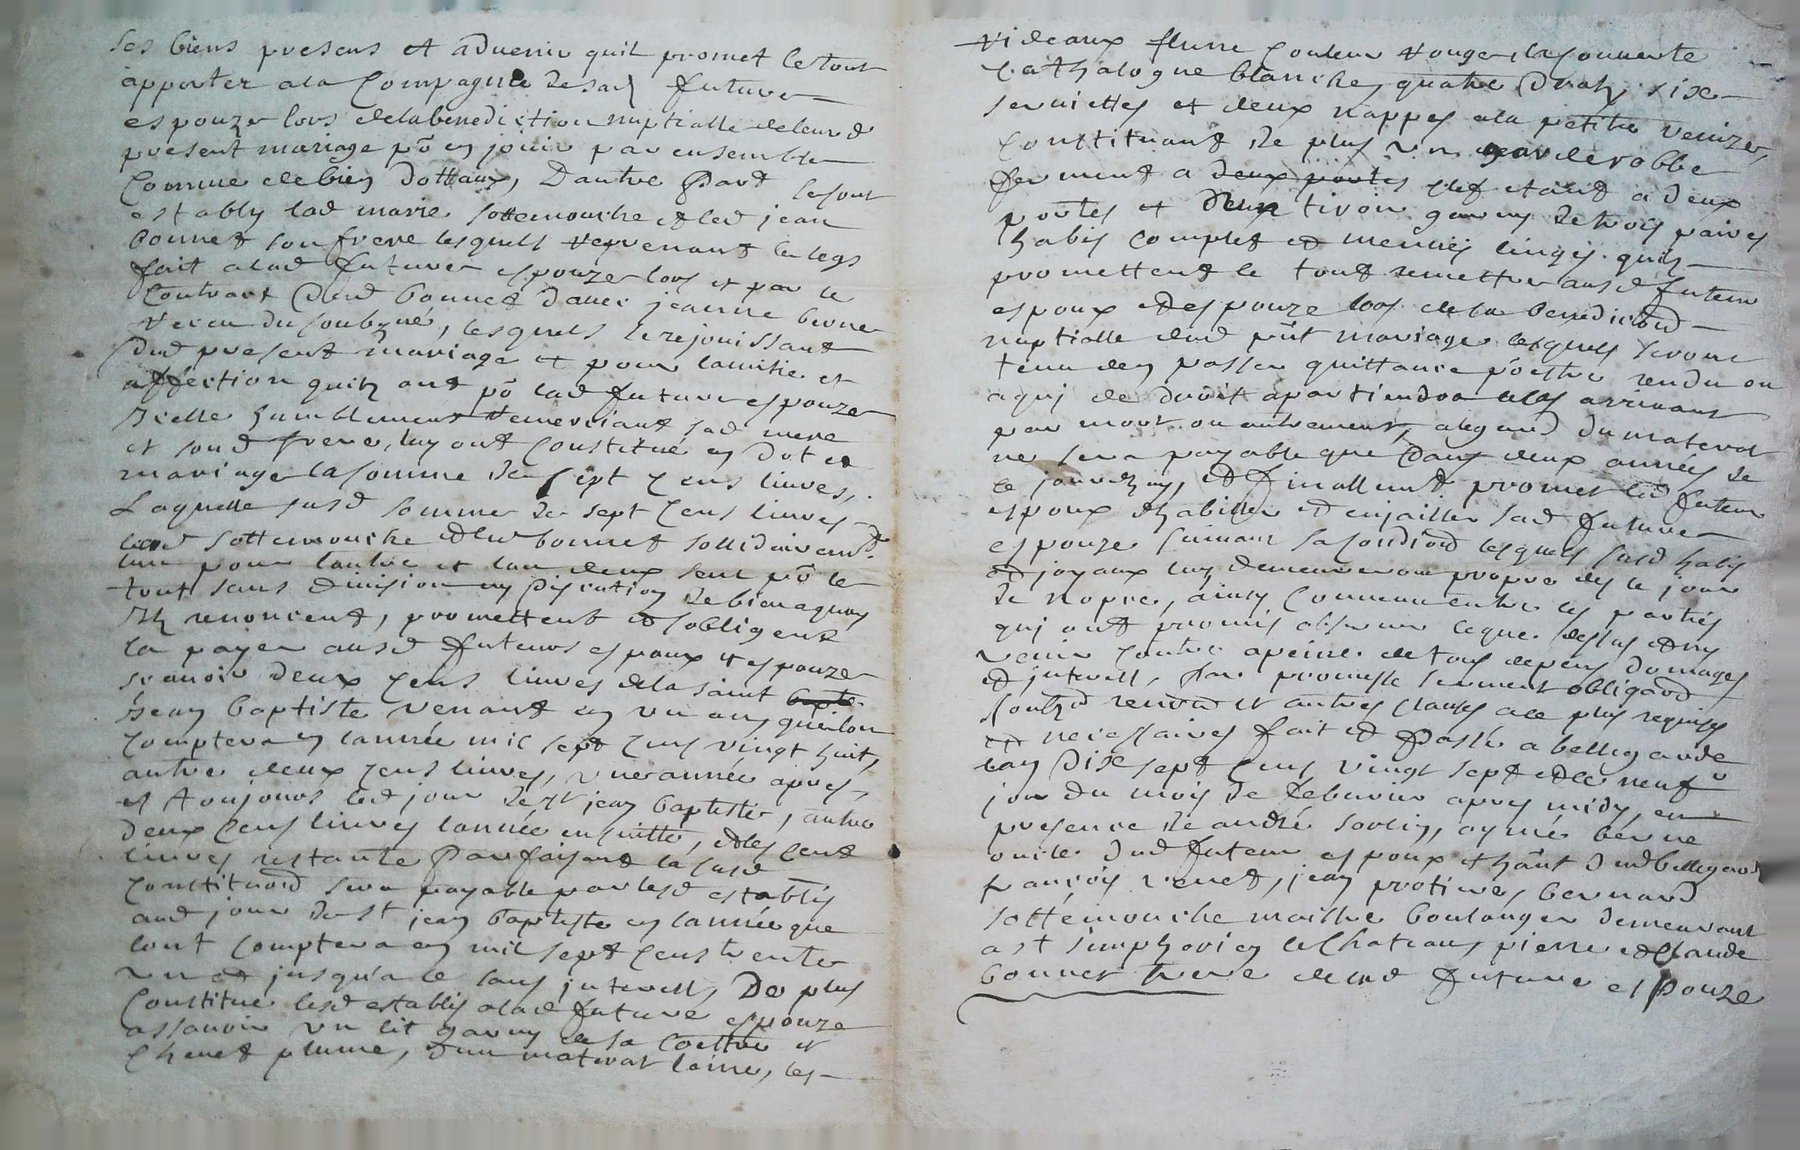 ses biens presens et aduenir quil promet le tout
apporter a la Compagnie de sad future
espouze lors de la benediction nuptialle de leur d
present mariage pō en jouir par ensemble
Comme de bien dottaux, Dautre Part le sont
establis lad marie sottemouche et led jean
bonnet son frere lesquels revenant le legs
fait a lad future espouze lors et par le
Contract dud bonnet d'auec jeanne berne
recu du soubzné, lesquels se rejouissant
dud present mariage et pour lamitie et
affection quilz ont pō lad future espouze
Icelle humblement remerciant sad mere
et sond frere, luy ont Constitué en Dot et
mariage la somme de sept Cens liures,
Laquelle susd somme de sept Cens liures
lad sottemouche et led bonnet sollidairemt
lun pour lautre et lun deux seul pō le
tout sans diuision ny discution de bien aquoy
Ilz renoncent, promettent et sobligent
la payer ausd futurs espoux et espouze
scauoir deux Cens liures de la saint
Jean baptiste venant en vn an que lon
Comptera en lannée mil sept Cens vingt huit,
autre deux Cens liures, vne année apres,
et toujours led jour de st jean baptiste, autre
deux Cens liures lannée ensuitte, et les Cent
liures restante Parfaisant la susd
Constituon sera payable par lesd establis
aud jour de st jean baptiste en lannée que
lont Comptera en mil sept Cens trente
vn et jusqua ce sans interest, De plus
Constitue lesd establis a lad future espouze
assauoir vn lit garny de sa Coettre et
Cheuet plume, d'un materat laine, les
rideaux flune Couleur rouge, la Couuerte
Cathalogne blanche, quatre Drats, sixe
seruiettes et deux nappes a la petitte venize,
Constituant de plus vn garderobbe
fermant a deux portes clef etant a deux
portes et deux tiroir garny de trois paires
habis Complet et menues linges quilz
promettent le tout remettre ausd futeur
espoux et espouze lors de la benediction
nuptialle dud pnt mariage lesquels seront
tenu den passer quittance pō estre rendu ou
a qui de droit apartiendra le cas arriuant
par mort ou autrement, a legard du materat
ne sera payable que Dans deux années de
ce jourdhuy, Et finallement promet led futeur
espoux dhabiller et enjailler sad future
espouze suiuant sa Condition lesquels susd habis
et joyaux luy demeureront propre des le jour
de nopce, ainsy Conuenu entre les parties
qui ont promis obseruer ceque dessus et ny
venir Contre a peine de tous depens domages
et interest, Par promesse serment obligaon
soubzon renon et autres Clauses a ce plus requises
et necessaires fait et Passé a bellegarde
lan Dixe sept Cens vingt sept et le neufe
jour du mois de feburier apres midy, en
presence de andré sorlin, aymé berne
oncle dud futeur espoux et hānt dud bellegarde
francois venet, jean protiere, bernard
sottemouche maistre boulanger demeurant
a st simphorien le Chateau, pierre et Claude
bonnet frere de lad future espouze